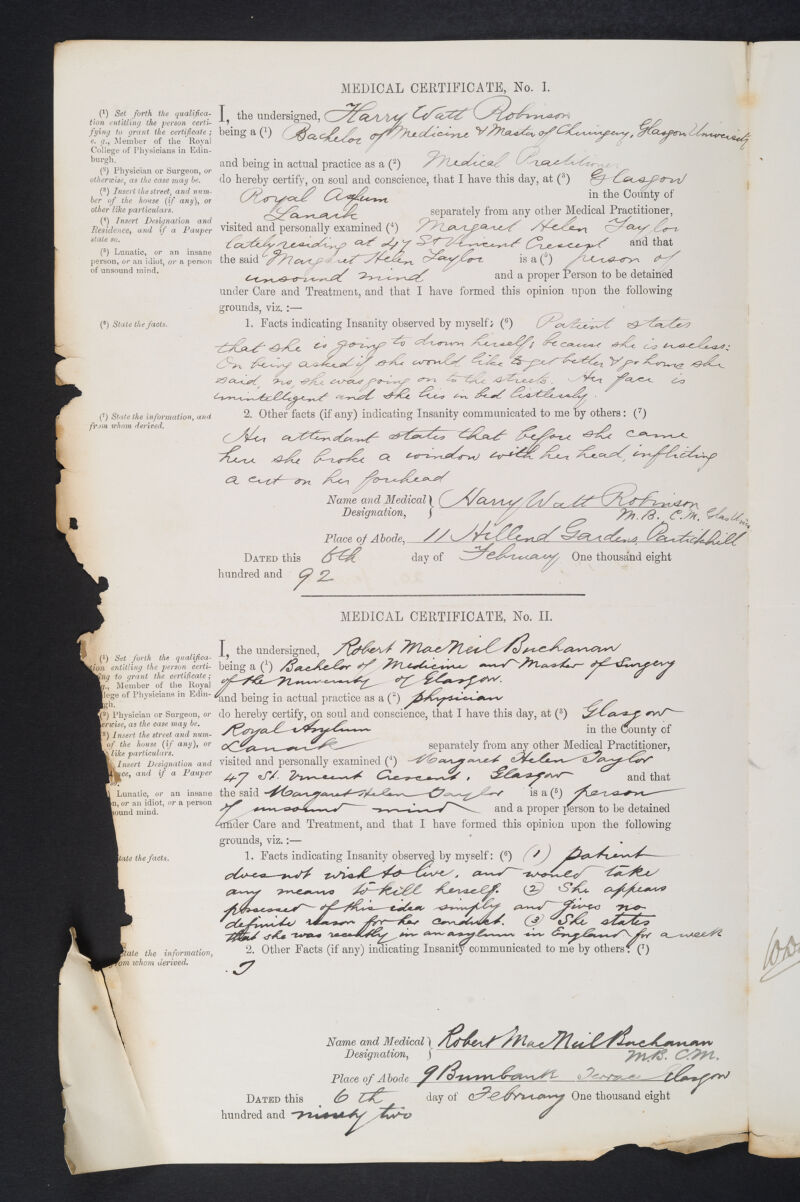 MEDICAL CERTIFICATE, No. I.
(1) Set forth the qualifica-
tion entitling the person certi-
fying to grant the certificate;
e. g., Member of the Royal
College of Physicians in Edin-
burgh.
(2) Physician or Surgeon, or
otherwise, as the case may be.
(3) Insert the street, and num-
ber of the house (if any), or
other like particulars.
(4) Insert Designation and
Residence, and if a Pauper
state so.
(5) Lunatic, or an insane
person, or an idiot, or a person
of unsound mind.
I, the undersigned, Harry Watt Robinson
being a (1) Bachelor of Medicine & Master of Chirurgery, Glasgow University
and being in actual practice as a (2) Medical Practitioner
do hereby certify, on soul and conscience, that I have this day, at (3) Glasgow
Royal Asylum in the County of
Lanark separately from any other Medical Practitioner,
visited and personally examined (4) Margaret Helen Taylor
lately residing at 47 St Vincent Crescent and that
the said Margaret Helen Taylor is a (5) person of
unsound mind and a proper Person to be detained
under Care and Treatment, and that I have formed this opinion upon the following
grounds, viz. :—
(6) State the facts.
1. Facts indicating Insanity observed by myself: (6) Patient states
that she is going to drown herself, because she is useless:
On being asked if she would like to get better & go home she
said, no, she was going on to the streets. Her face is
unintelligent and she lies in bed listlessly.
(7) State the information, and
from whom derived.
2. Other facts (if any) indicating Insanity communicated to me by others: (7)
Her attendant states that before she came
here she broke a window with her head, inflicting
a cut on her forehead
Name and Medical Designation, Harry Watt Robinson
M.B. C.M. Glas Univ
Place of Abode, 11 Hillend Gardens, Partickhill
DATED this 6th day of February One thousand eight
hundred and 92
MEDICAL CERTIFICATE, No. II.
(1) Set forth the qualifica-
tion entitling the person certi-
ing to grant the certificate;
g., Member of the Royal
lege of Physicians in Edin-
gh.
) Physician or Surgeon, or
erwise, as the case may be.
) Insert the street and num-
of the house (if any), or
like particulars.
Insert Designation and
ce, and if a Pauper
Lunatic, or an insane
n, or an idiot, or a person
sound mind.
I, the undersigned, Robert MacNeil Buchanan
being a (1) Bachelor of Medicine and Master of Surgery
of the University of Glasgow.
and being in actual practice as a (2) physician
do hereby certify, on soul and conscience, that I have this day, at (3) Glasgow
Royal Asylum in the County of
Lanark separately from any other Medical Practitioner,
visited and personally examined (4) Margaret Helen Taylor
47 St. Vincent Crescent, Glasgow and that
the said Margaret Helen Taylor is a (5) person
of unsound mind and a proper person to be detained
under Care and Treatment, and that I have formed this opinion upon the following
grounds, viz. :—
tate the facts.
1. Facts indicating Insanity observed by myself: (6) (1) patient
does not wish to live, and would take
any means to kill herself. (2) She appears
possessed of this idea simply and gives no
definite reason for her conduct. (3) She states
that she was recently in an asylum in England for a week
tate the information,
om whom derived.
2. Other Facts (if any) indicating Insanity communicated to me by others: (7)
Name and Medical Designation, Robert MacNeil Buchanan
M.B. C.M.
Place of Abode 9 Burnbank Terrace Glasgow
DATED this 6th day of February One thousand eight
hundred and ninety two